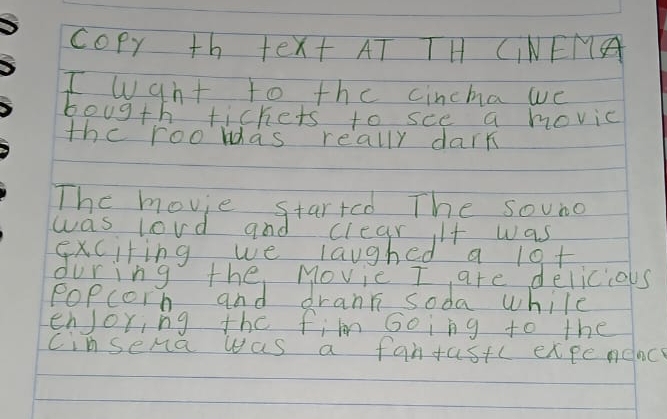 COPY th text AT TH CINEMA
I want to the cinema we
bougth tickets to see a movie
the roo was really dark
The movie started The sound
was loud and clear It was
exciting we laughed a lot
during the Movie I ate delicious
POPcorn and drank soda while
enjoying the fim Going to the
Cinsema was a fantastc expenence